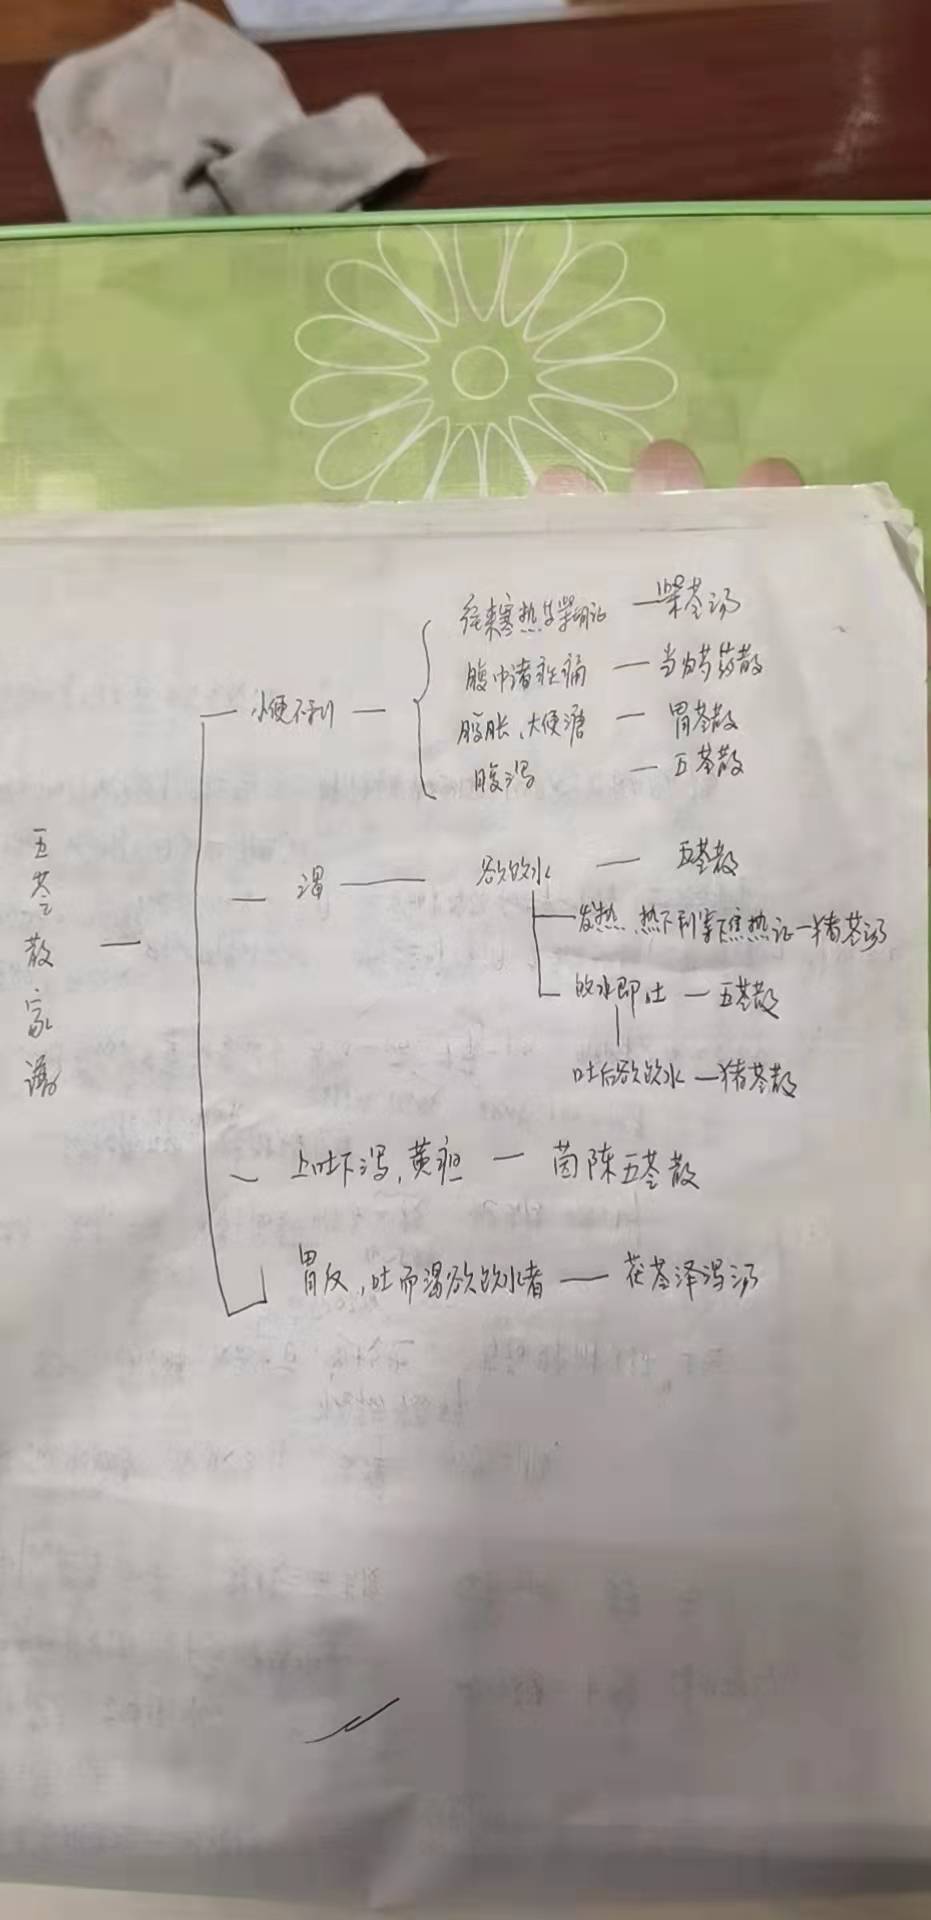 五苓散家谱
小便不利
往来寒热等柴胡证 — 柴苓汤
腹中诸疾痛 — 当归芍药散
腹胀、大便溏 — 胃苓散
腹泻 — 五苓散
渴 — 欲饮水 — 五苓散
发热、热下利等下焦热证 — 猪苓汤
饮水即吐 — 五苓散
吐后欲饮水 — 猪苓散
上吐下泻,黄疸 — 茵陈五苓散
胃反,吐而渴欲饮水者 — 茯苓泽泻汤